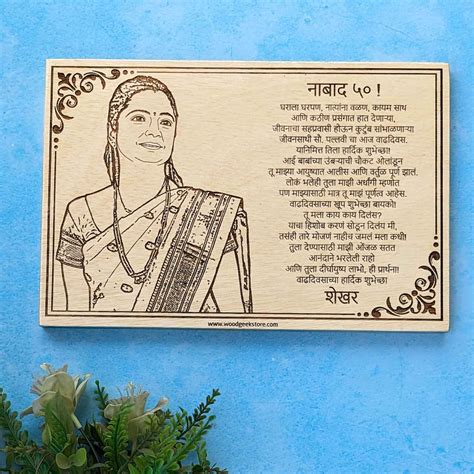 नाबाद ५० !
घराला घरपण, नात्यांना वळण, कायम साथ
आणि कठीण प्रसंगात हात देणाऱ्या,
जीवनाची सहप्रवासी होऊन कुटुंब सांभाळणाऱ्या
जीवनसाथी सौ. पल्लवी चा आज वाढदिवस.
यानिमित्त तिला हार्दिक शुभेच्छा!
आई बाबांच्या उंबऱ्याची चौकट ओलांडून
तू माझ्या आयुष्यात आलीस आणि वर्तुळ पूर्ण झालं.
लोकं भलेही तुला माझी अर्धांगी म्हणोत
पण माझ्यासाठी मात्र तू माझं पूर्णत्व आहेस.
वाढदिवसाच्या खूप शुभेच्छा बायको!
तू मला काय काय दिलंस?
याचा हिशोब करणं सोडून दिलंय मी,
तसंही तारे मोजणं नाहीच जमलं मला कधी!
तुला देण्यासाठी माझी ओंजळ सतत
आनंदाने भरलेली राहो
आणि तुला दीर्घायुष्य लाभो, ही प्रार्थना!
वाढदिवसाच्या हार्दिक शुभेच्छा
शेखर
www.woodgeekstore.com